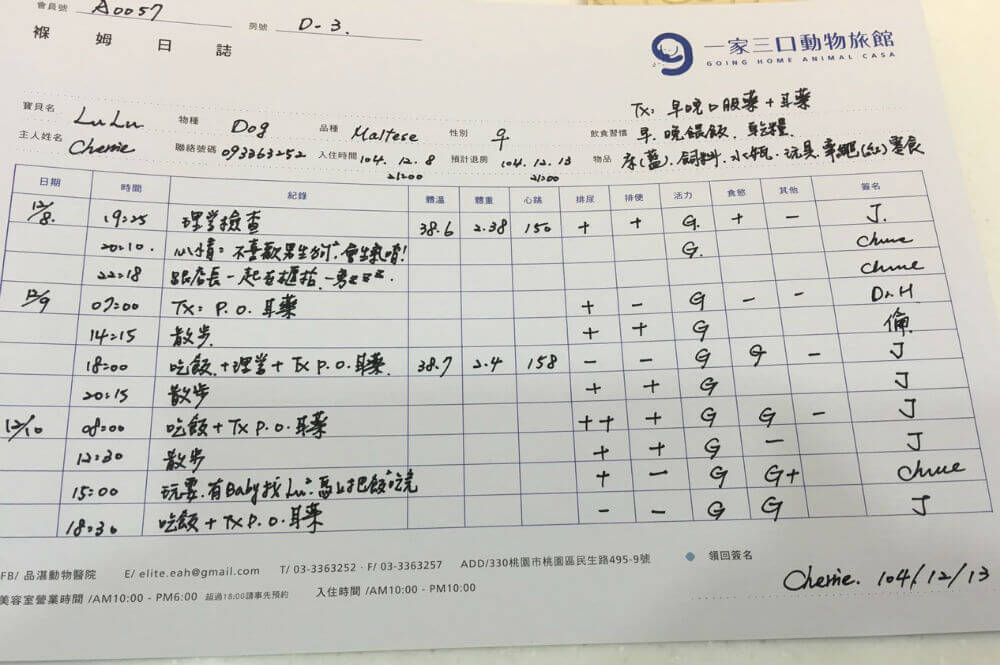 會員號 A0057 房號 D-3.
褓姆日誌
一家三口動物旅館
GOING HOME ANIMAL CASA
Tx: 早晚口服藥+耳藥
寶貝名 LuLu 物種 Dog 品種 Maltese 性別 ♀ 飲食習慣 早.晚餵飯.乾糧.
主人姓名 Cherrie 聯絡號碼 093363252 入住時間 104.12.8 21:00 預計退房 104.12.13 21:00 物品 床(藍).飼料.水瓶.玩具.牽繩(紅)零食
日期 時間 紀錄 體溫 體重 心跳 排尿 排便 活力 食慾 其他 簽名
12/8. 19:25 理學檢查 38.6 2.38 150 + + G. + - J.
20:10. 心情: 不喜歡男生 會生氣唷! G.
22:18 跟店長一起在櫃抬
12/9 07:00 Tx: P.O. 耳藥 + - G - - Dr.H
14:15 散步. + + G 倫
18:00 吃飯.+理學+Tx P.O.耳藥. 38.7 2.4 158 - - G G - J
20:15 散步 + + G J
12/10 08:00 吃飯+Tx P.O.耳藥 ++ + G G - J
12:30 散步 + + G - J
15:00 玩耍.有Baby找Lu².馬上把飯吃完 + - G G+
18:30 吃飯+Tx P.O.耳藥 - - G G J
FB/ 品湛動物醫院 E/ elite.eah@gmail.com T/ 03-3363252 · F/ 03-3363257 ADD/330桃園市桃園區民生路495-9號 領回簽名
美容室營業時間 /AM10:00 - PM6:00 超過18:00請事先預約 入住時間 /AM10:00 - PM10:00
Cherrie. 104/12/13